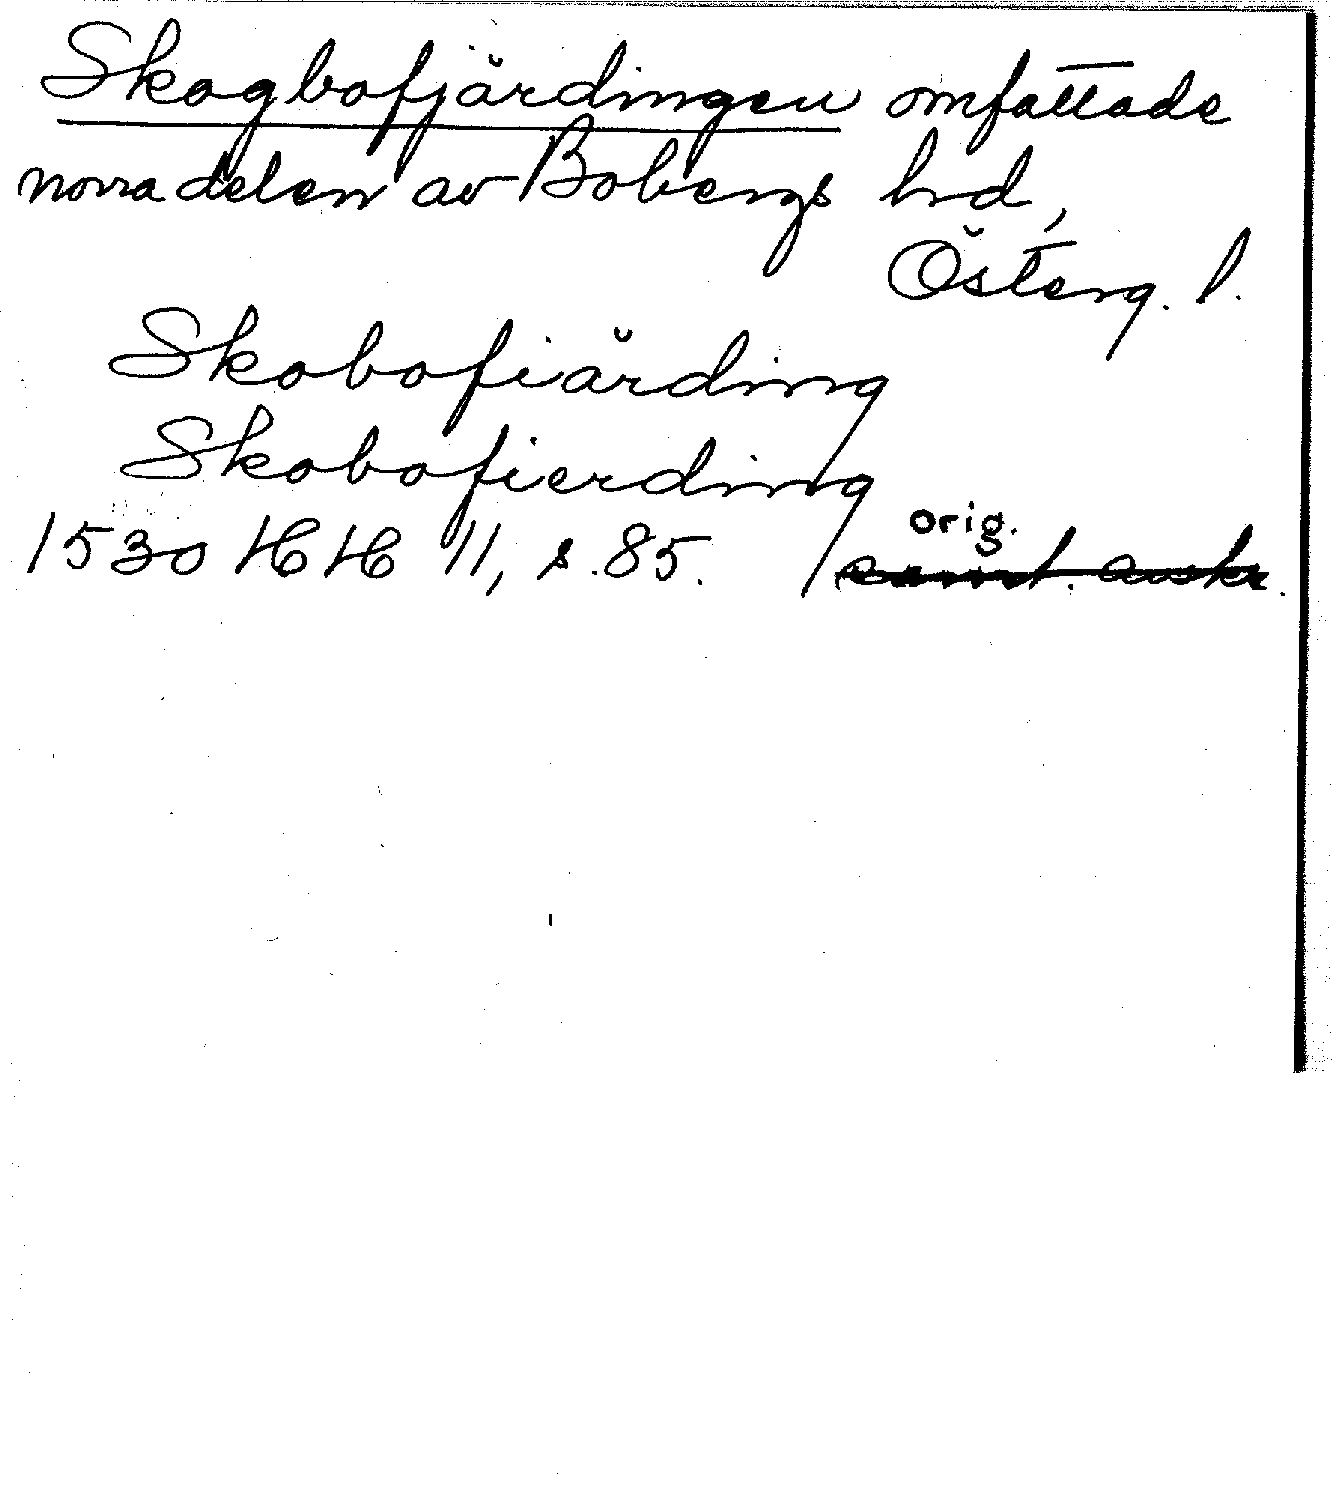 Skogbofjärdingen omfattade
norra delen av Bobergs hrd,
Österg. l.
Skobofiärding
Skobofierding
orig.
1530 HH 11, s. 85. samt. avskr.